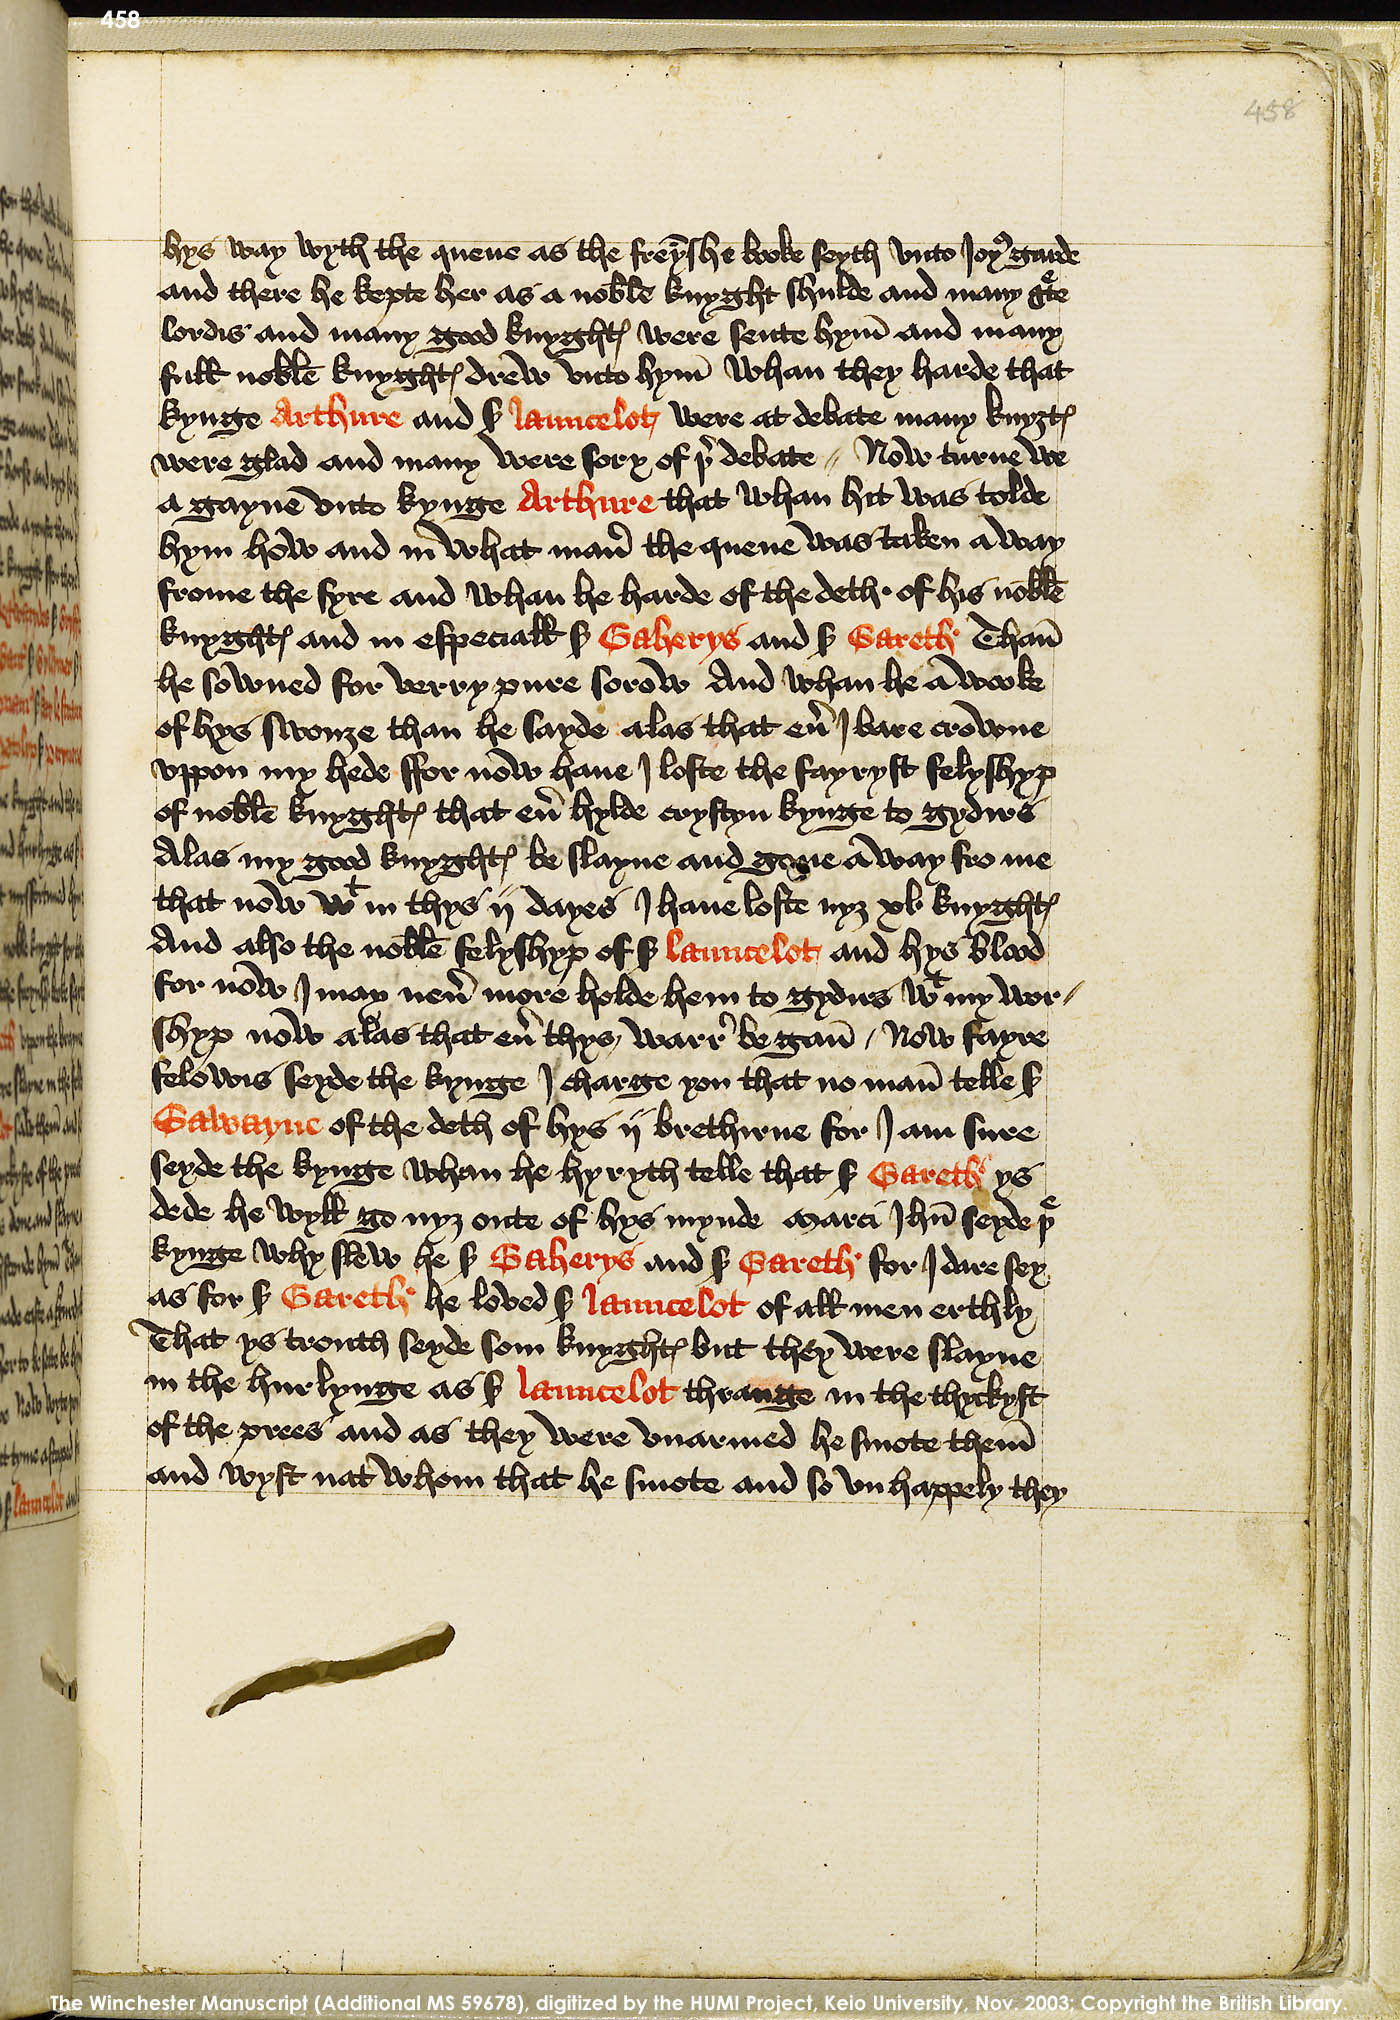 458
458
hys way wyth the quene as the freynshe booke seyth vnto Joyꝰ garde
and there he kepte her as a noble knyght shulde and many gͤte
lordis and many good knyghtꝭ were sente hym̄ and many
full noble knyghtꝭ drew vnto hym̄ whan they harde that
kynge Arthure and ẜ launcelot were at debate many knyȝtꝭ
were glad and many were sory of þer debate // Now turne we
a gayne vnto kynge Arthure that whan hit was tolde
hym how and in what maner the quene was taken a way
frome the fyre and whan he harde of the deth of his noble
knyghtꝭ and in especiall ẜ Gaherys and ẜ Gareth Than̄
he sowned for verry pure sorow And whan he a wooke
of hys swouȝe than he sayde alas that eu̾ I bare crowne
vppon my hede ffor now haue I loste the fayryst felyshyp
of noble knyghtꝭ that eu̾ hylde crystyn kynge to gydirs
Alas my good knyghtꝭ be slayne and gone a way fro me
that now wt in thys ij dayes I haue loste nyȝ xl knyghtꝭ
And also the noble felyshyp of ẜ launcelot and hys blood
for now I may neu̾ more holde hem to gydirs wt my wor /
shyp now alas that eu̾ thys warre be gan̄ / Now fayre
felowis seyde the kynge I charge you that no man̄ telle ẜ
Gawayne of the deth of hys ij brethirne for I am sure
seyde the kynge whan he hyryth telle that ẜ Gareth ys
dede he wyll go nyȝ oute of hys mynde Marci Jhū seyde þe
kynge why slew he ẜ Gaherys and ẜ Gareth for I dare sey
as for ẜ Gareth he loved ẜ launcelot of all men erthly
That ys trouth seyde som knyghtꝭ but they were slayne
in the hurlynge as ẜ launcelot thrange in the thyckyst
of the prees and as they were vnarmed he smote them̄
and wyst nat whom that he smote and so vnhappely they
The Winchester Manuscript (Additional MS 59678), digitized by the HUMI Project, Keio University, Nov. 2003; Copyright the British Library.